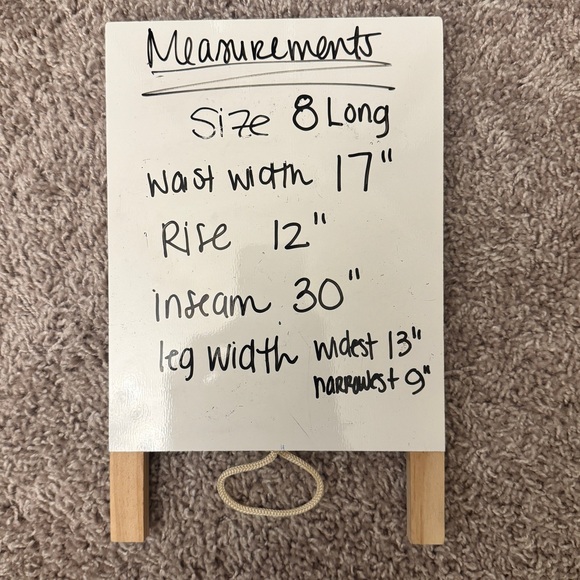 Measurements
Size 8 Long
Waist width 17"
Rise 12"
inseam 30"
leg width widest 13"
narrowest 9"